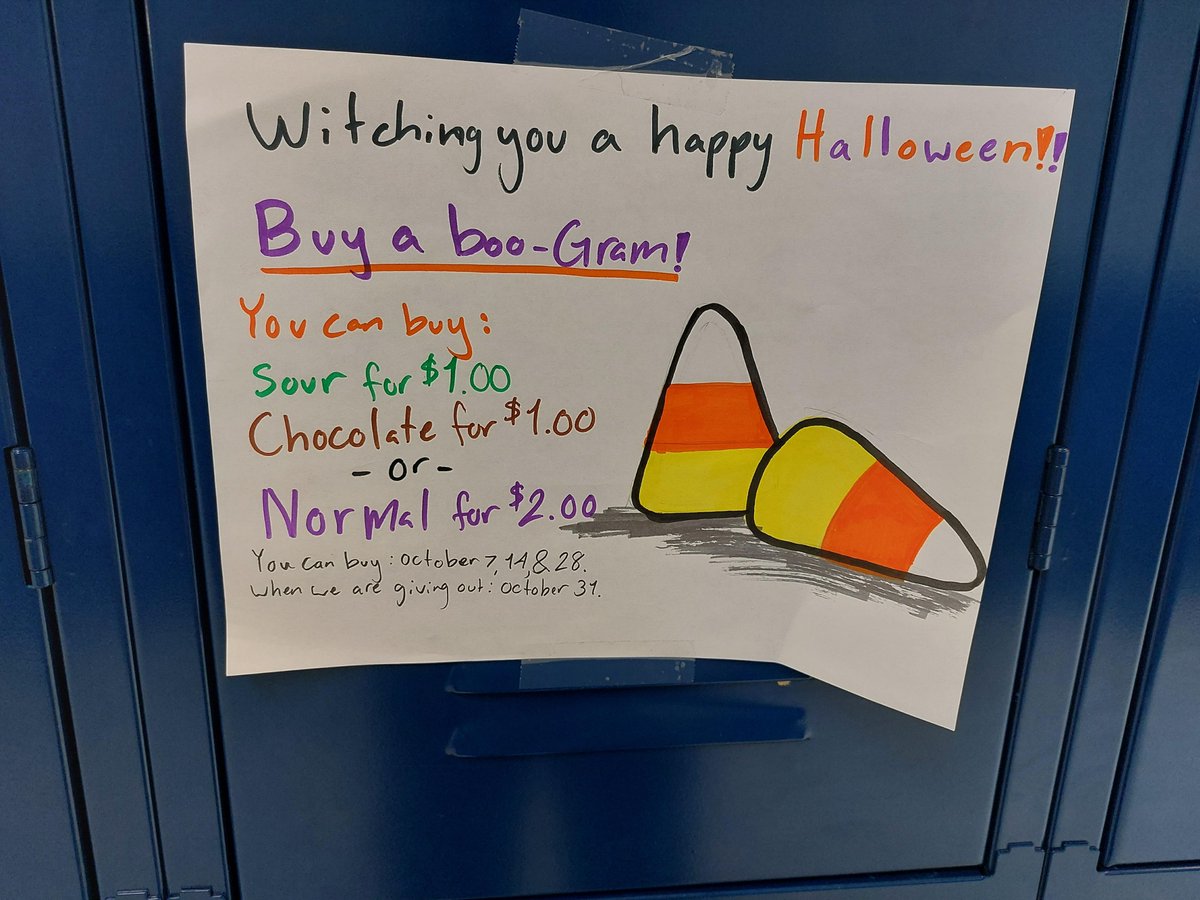 Witching you a happy Halloween!!
Buy a boo-Gram!
You can buy:
Sour for $1.00
Chocolate for $1.00
- or -
Normal for $2.00
You can buy: October 7, 14, & 28.
When we are giving out: October 31.